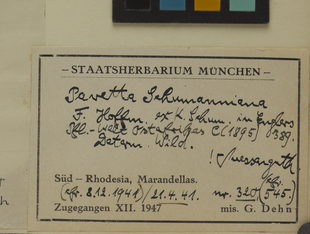 – STAATSHERBARIUM MÜNCHEN –
Pavetta Schumanniana
F. Hoffm. ex K. Schum. in Englers
Pfl.-Welt Ostafrikas C (1895) 389.
Determ. Wild.
! Suessenguth
Süd – Rhodesia, Marandellas.
(fr. 8.12.1941) / 21.4.41. nr. 320 (545)
Zugegangen XII. 1947 mis. G. Dehn